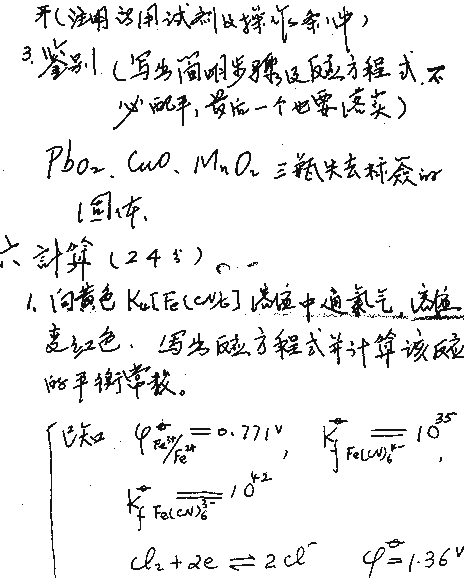 开(注明的用试剂及操作条件)
3. 鉴别 (写出简明步骤及反应方程式,不
必配平,最后一个也要落实)
PbO₂、CuO、MnO₂ 三瓶失去标签的
固体.
六 計算 (24分)
1. 向黄色 K₄[Fe(CN)₆] 溶液中通氯气, 溶液
变红色. 写出反应方程式并计算该反应
的平衡常数。
已知 φ°Fe³⁺/Fe²⁺ = 0.771V, K°f Fe(CN)₆⁴⁻ = 10³⁵,
K°f Fe(CN)₆³⁻ = 10⁴²
Cl₂ + 2e ⇌ 2Cl⁻ φ° = 1.36V